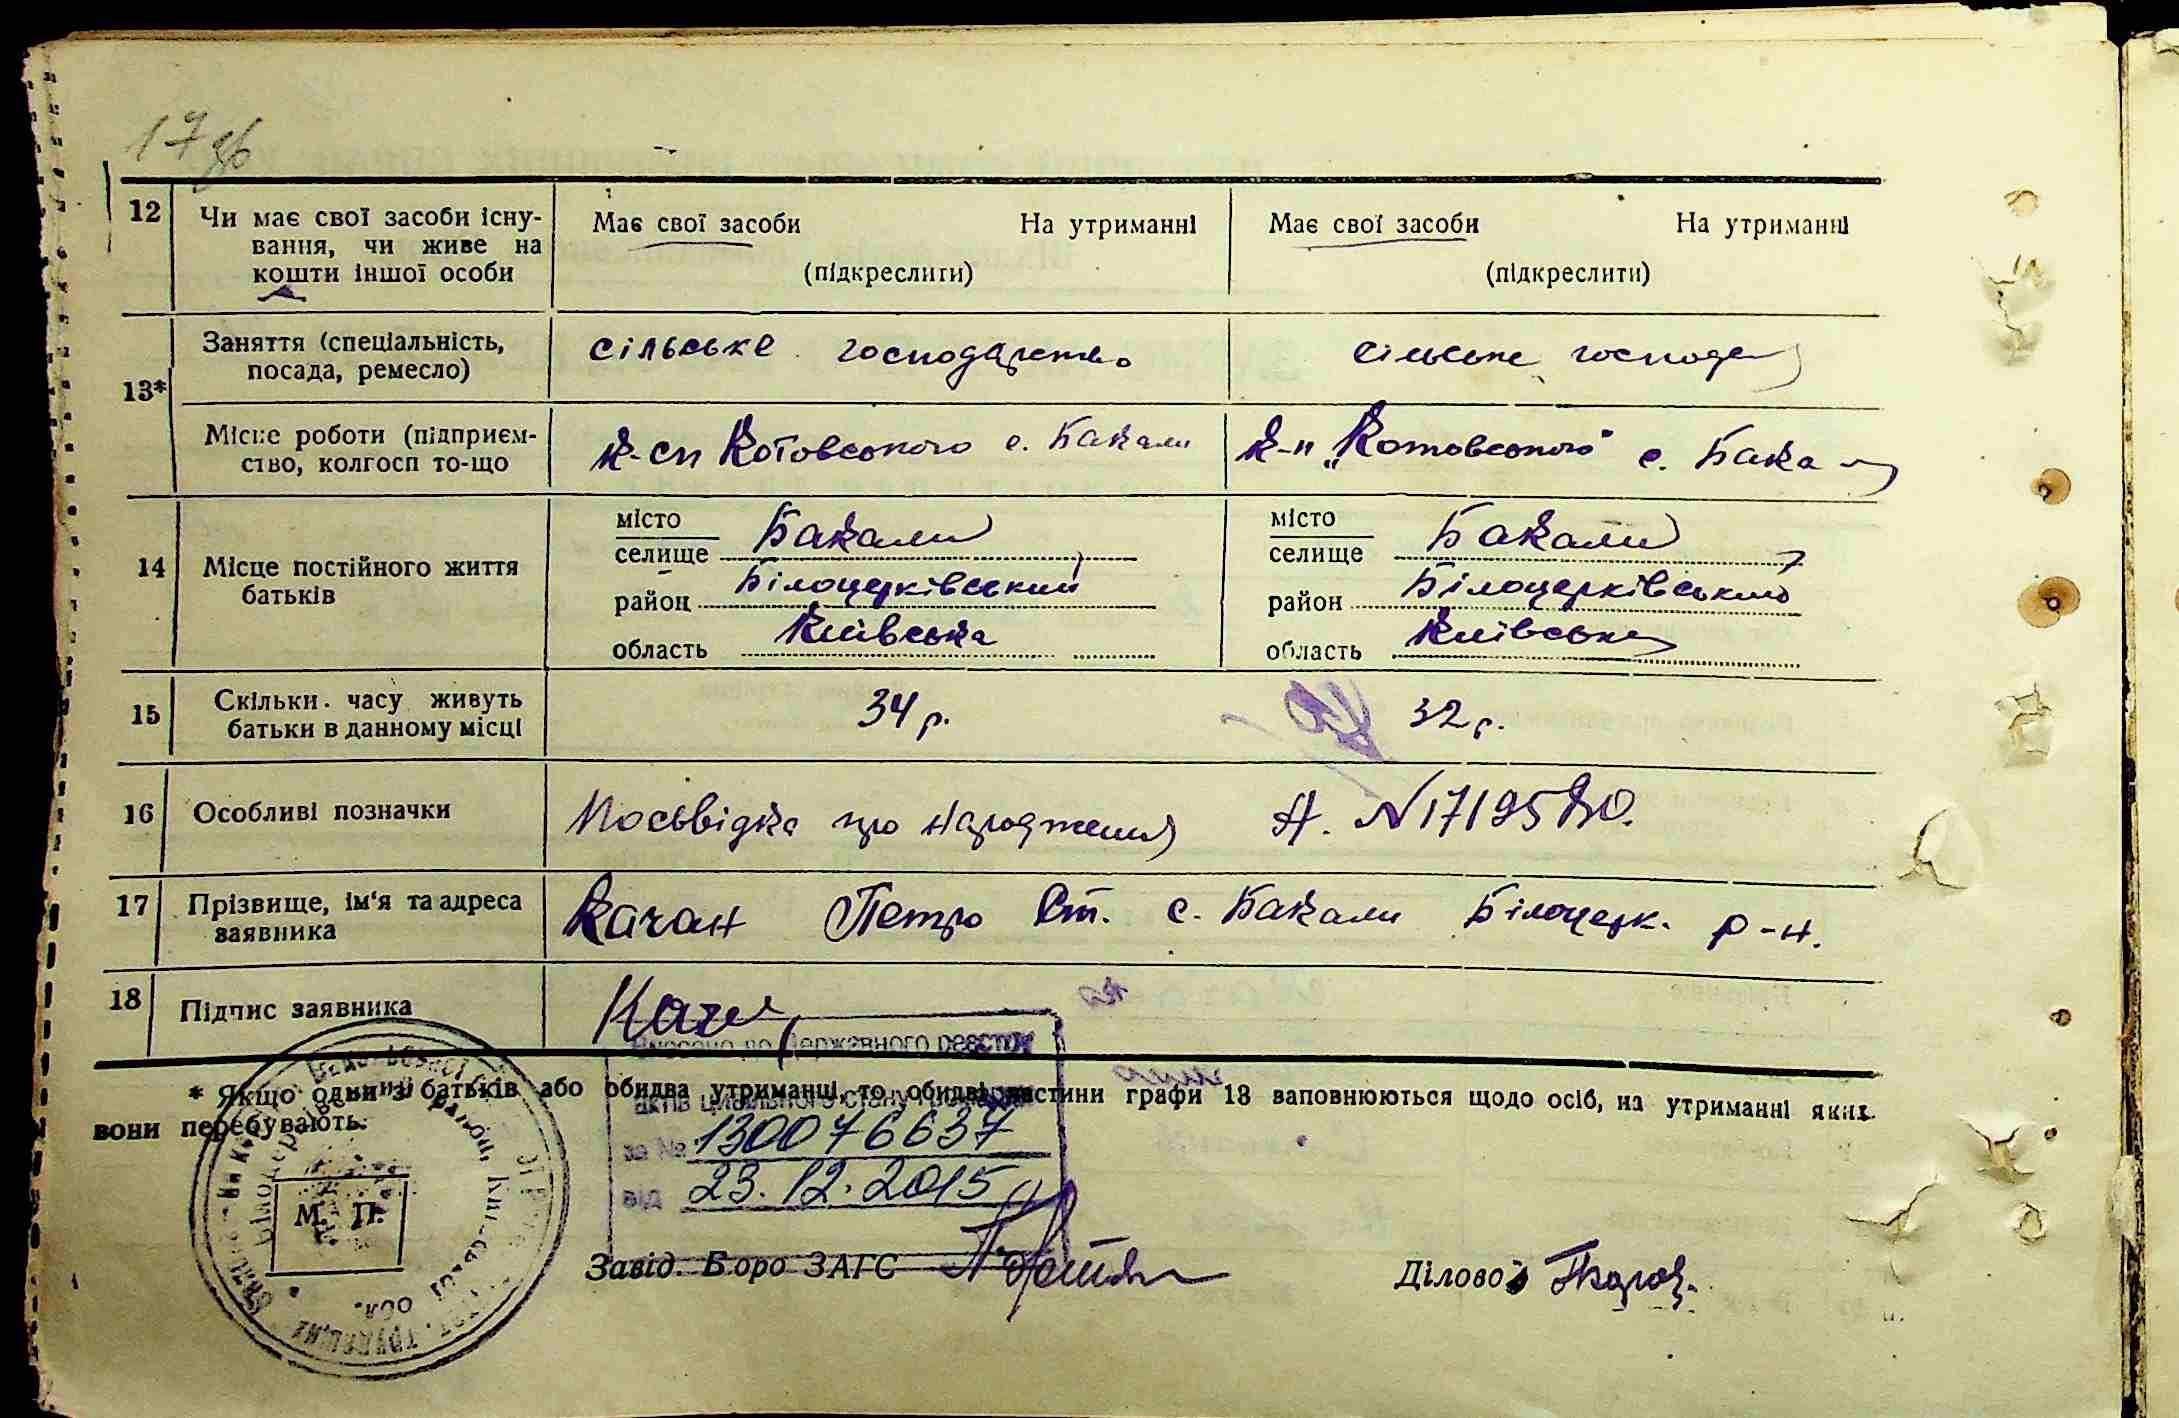 17 зв
12 Чи має свої засоби існу- Має свої засоби На утриманні Має свої засоби На утриманні
вання, чи живе на
кошти іншої особи (підкреслити) (підкреслити)
13* Заняття (спеціальність, сільське господарство сільське господар
посада, ремесло)
Місце роботи (підприєм- к-сп Котовського с. Бакали к-п „Котовського" с. Бакали
ство, колгосп то-що
14 Місце постійного життя батьків
місто Бакали місто Бакали
селище селище
район Білоцерківський район Білоцерківський
область Київська область Київська
15 Скільки часу живуть 34 р. 32 р.
батьки в данному місці
16 Особливі позначки Посьвідка про народження А. №
17 Прізвище, ім'я та адреса Качан Петро Ст. с. Бакали Білоцерк. р-н.
заявника
18 Підпис заявника Кача
Внесено до Державного реєстру
* Якщо один з батьків або обидва утриманці, то обидві частини графи 13 заповнюються щодо осіб, на утриманні яких
вони перебувають.
актів цивільного стану громадян
за № 130076637
від 23.12.2015
М. П.
Завід. Бюро ЗАГС Діловод